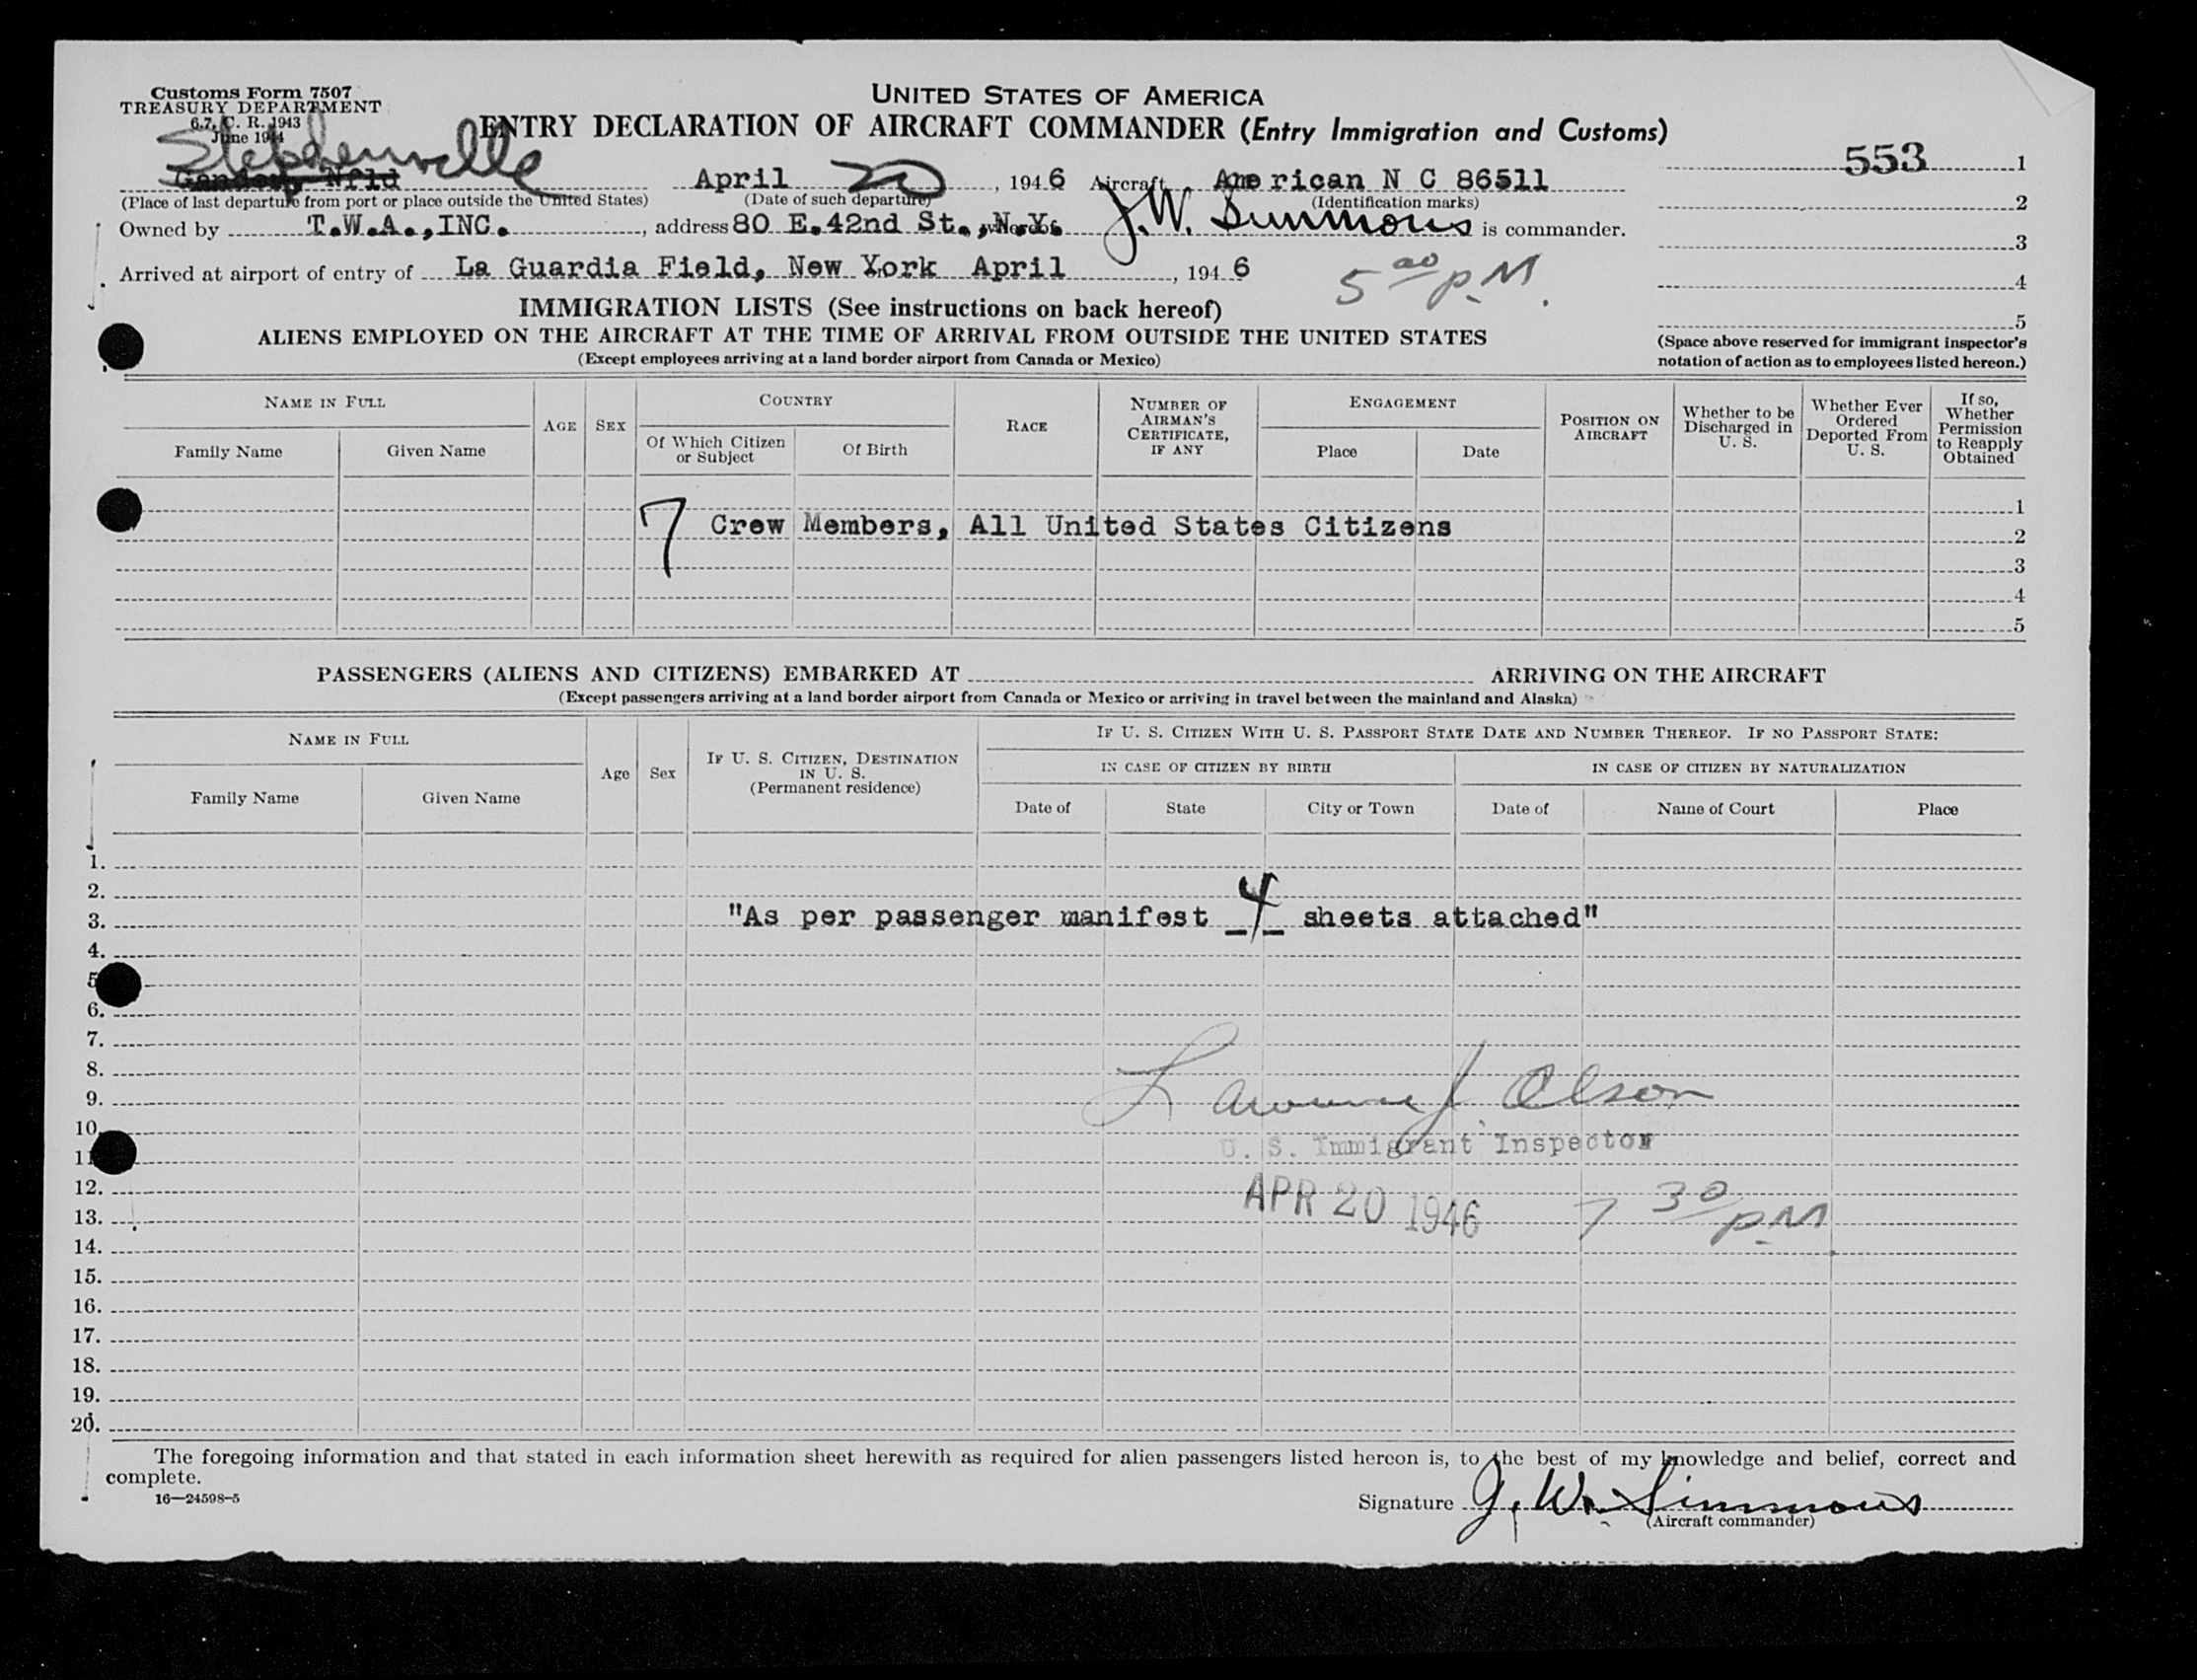 Customs Form 7507
TREASURY DEPARTMENT
6.7, C. R. 1943
June 1944
UNITED STATES OF AMERICA
ENTRY DECLARATION OF AIRCRAFT COMMANDER (Entry Immigration and Customs)
553 1
2
3
4
5
Stephenville
Gander, Nfld April 20, 1946 Aircraft American N C 86511
(Place of last departure from port or place outside the United States) (Date of such departure) (Identification marks)
Owned by T.W.A.,INC., address 80 E.42nd St.,N.Y. J.W. Simmons is commander.
Arrived at airport of entry of La Guardia Field, New York April, 1946 5 00 P.M.
IMMIGRATION LISTS (See instructions on back hereof)
ALIENS EMPLOYED ON THE AIRCRAFT AT THE TIME OF ARRIVAL FROM OUTSIDE THE UNITED STATES
(Except employees arriving at a land border airport from Canada or Mexico)
(Space above reserved for immigrant inspector's
notation of action as to employees listed hereon.)
NAME IN FULL
Family Name Given Name
AGE SEX
COUNTRY
Of Which Citizen or Subject Of Birth
RACE
NUMBER OF AIRMAN'S CERTIFICATE, IF ANY
ENGAGEMENT
Place Date
POSITION ON AIRCRAFT
Whether to be Discharged in U. S.
Whether Ever Ordered Deported From U. S.
If so, Whether Permission to Reapply Obtained
1
7 Crew Members, All United States Citizens
2
3
4
5
PASSENGERS (ALIENS AND CITIZENS) EMBARKED AT ARRIVING ON THE AIRCRAFT
(Except passengers arriving at a land border airport from Canada or Mexico or arriving in travel between the mainland and Alaska)
NAME IN FULL
Family Name Given Name
Age Sex
IF U. S. CITIZEN, DESTINATION IN U. S.
(Permanent residence)
IF U. S. CITIZEN WITH U. S. PASSPORT STATE DATE AND NUMBER THEREOF. IF NO PASSPORT STATE:
IN CASE OF CITIZEN BY BIRTH IN CASE OF CITIZEN BY NATURALIZATION
Date of State City or Town Date of Name of Court Place
1.
2.
3. "As per passenger manifest 4 sheets attached"
4.
5
6.
7.
8.
9. Lawrence J. Olson
10.
11 U. S. Immigrant Inspector
12.
13. APR 20 1946 7 30 P.M.
14.
15.
16.
17.
18.
19.
20.
The foregoing information and that stated in each information sheet herewith as required for alien passengers listed hereon is, to the best of my knowledge and belief, correct and
complete.
16—24598-5
Signature J. W. Simmons
(Aircraft commander)